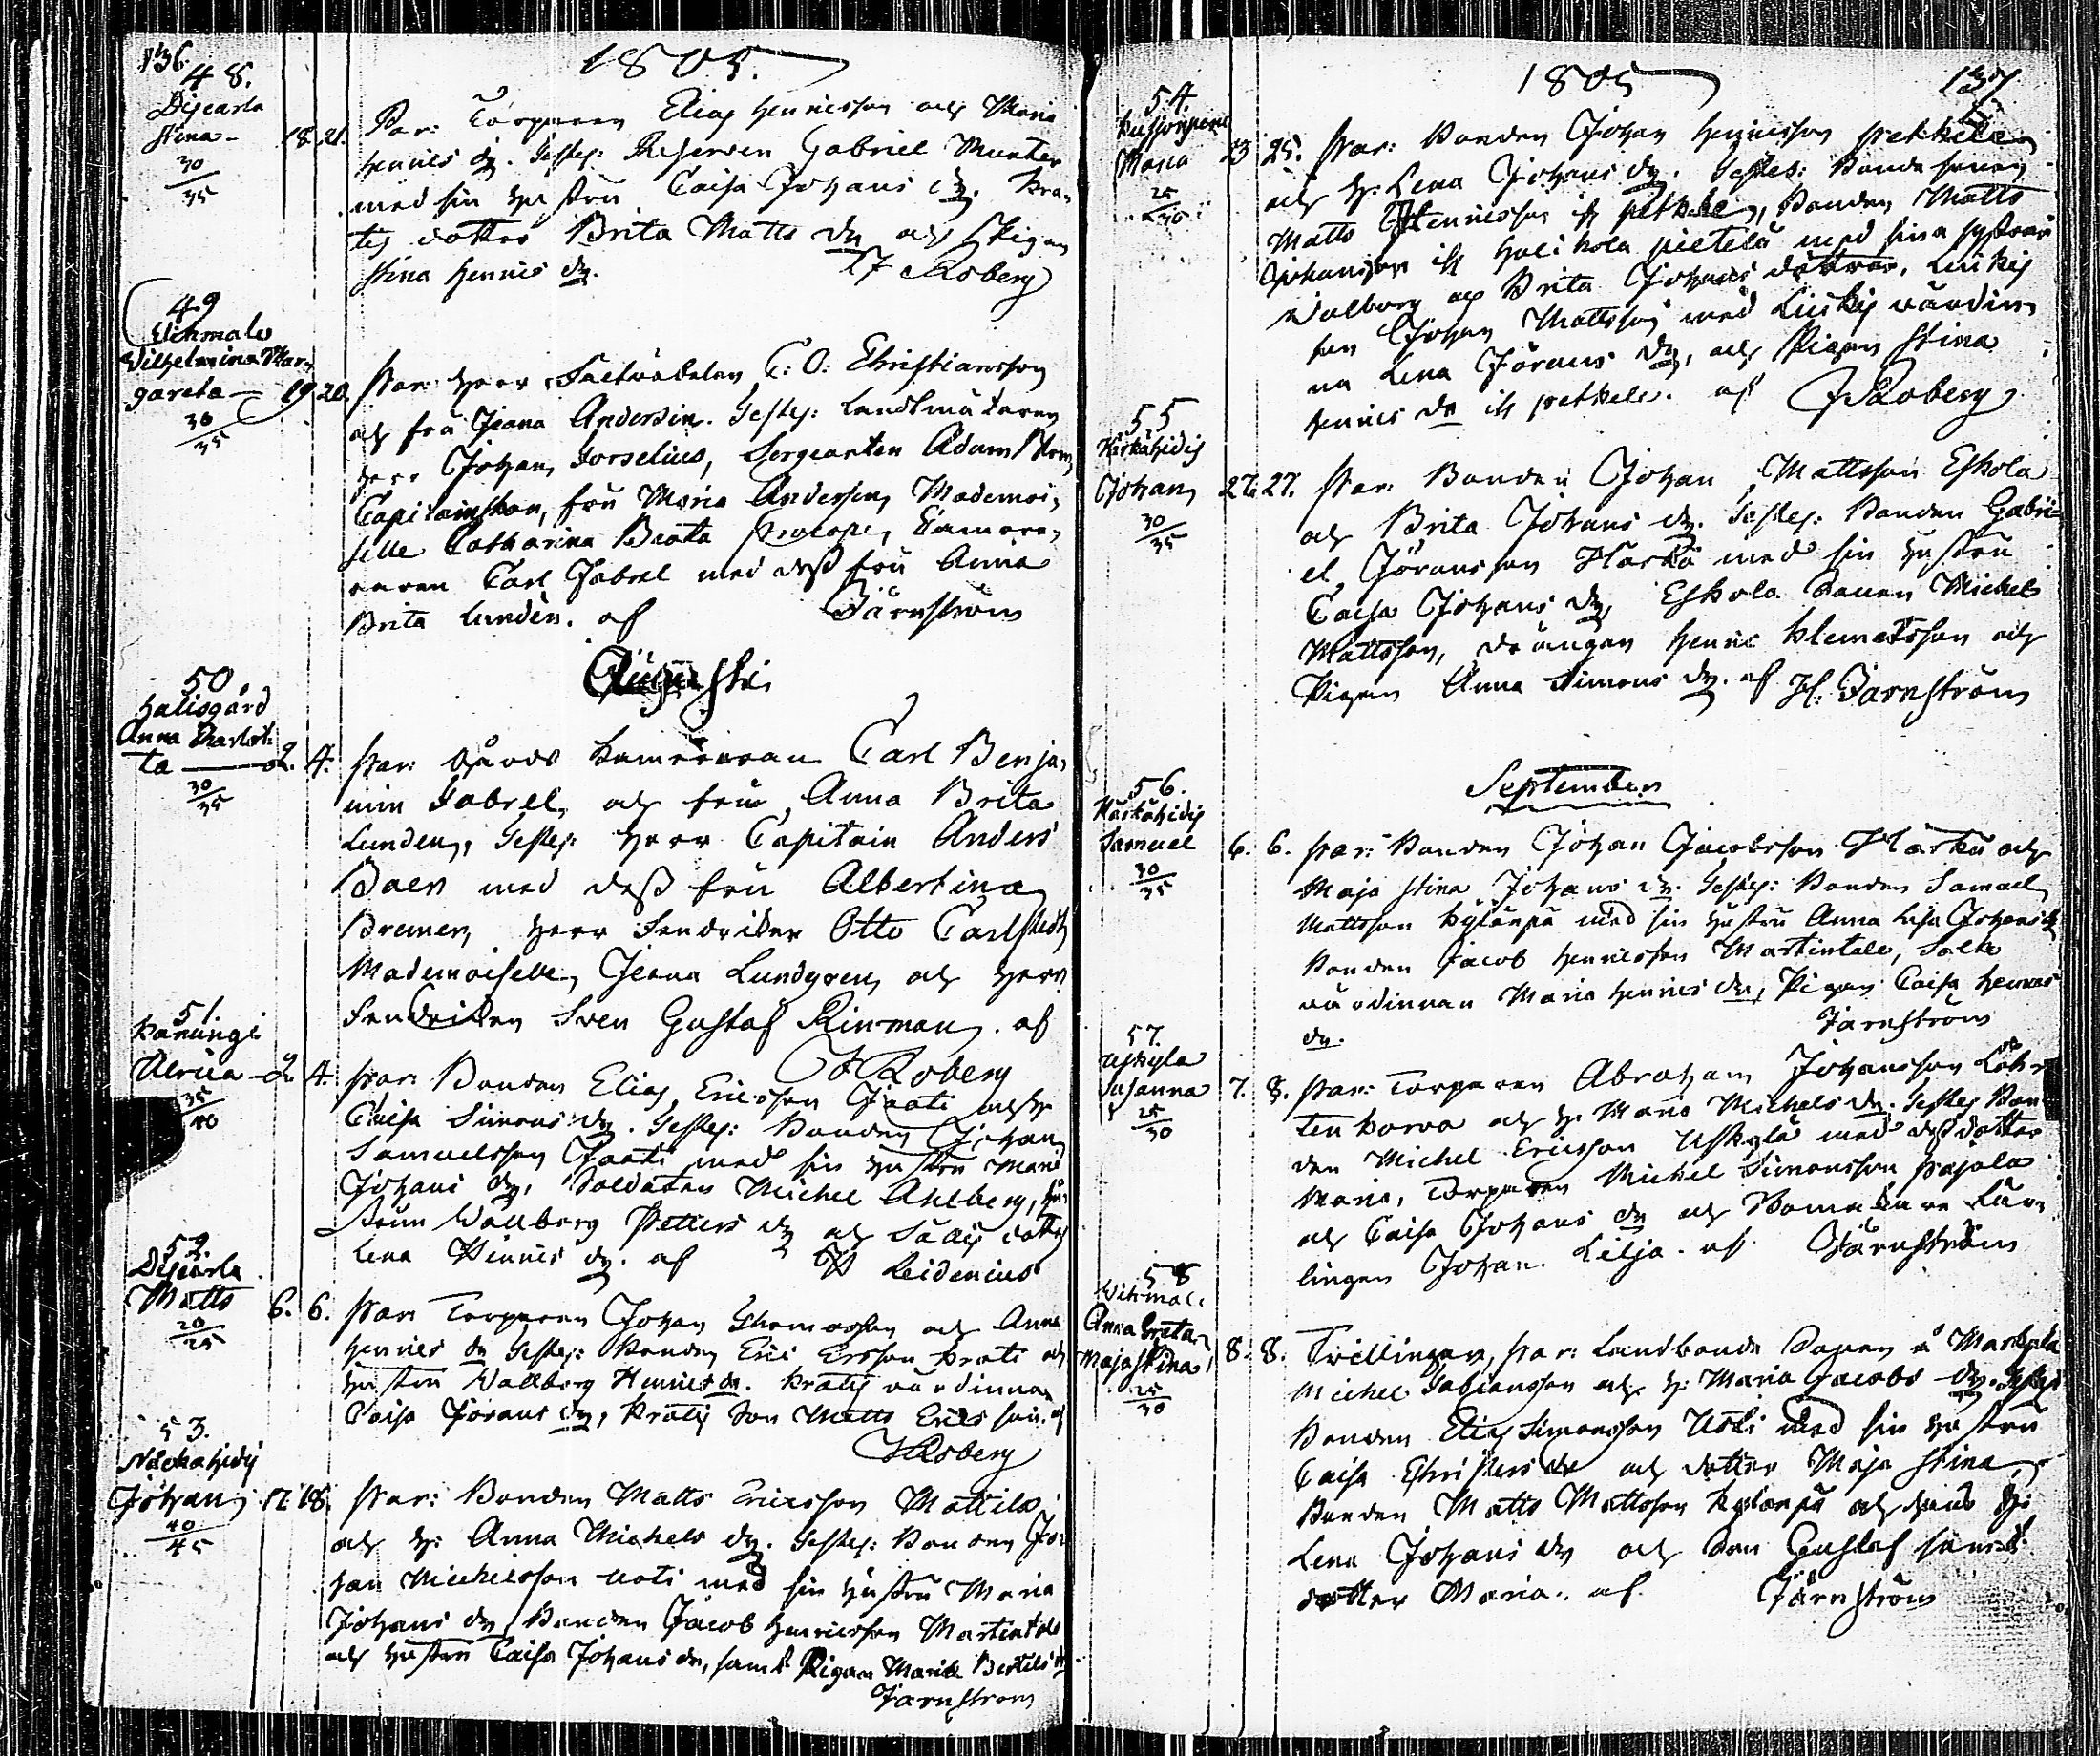 136.
1805.
48.
Dijcarla
Stina - 18. 21.
30
35
Par: Torparen Elias Henricsson och Maria
Henrics dr. Testes: Reserven Gabriel Munter
med sin hustru Caisa Johans dr. Kra-
tis dotter Brita Matts dr och Pigan
Stina Henrics dr. Roberg
49
Wehmais
Wilhelmina Mar-
gareta - 19 20.
30
35
Par: Herr Factoren C: O: Christiansson
och fru Jeana Andersin. Testes: Landtmätaren
Herr Johan Forselius, Sergeanten Adam
Capitainskan, fru Maria Andersin, Mademoi-
selle Catharina Beata Procopé, Camere-
raren Carl Fabrel med dess fru Anna
Brita Lunden. af Järnström
Augusti
50
Halisgård
Anna Charlot-
ta - 2. 4.
30
35
Par: Härads Kamereraren Carl Benja-
min Fabrel, och fru Anna Brita
Lunden, Testes: Herr Capitain Anders
Baer med dess fru Albertina
Bremer, Herr Fendriken Otto Carlstedt
Mademoiselle, Jeana Lundgren, och Herr
Fendriken Sven Gustaf Rinman. af
Roberg
51.
Kanungi
Ulrica - 2. 4.
35
40
Par: Bonden Elias Ericsson Jaati och h:
Caisa Simons dr. Testes: Bonden Johan
Samuelsson Jaati med sin hustru Maria
Johans dr, Soldaten Michel Ahlberg, hu-
strun Wallborg Petters dr och dotter
Lena Henrics dr. af Leidenius
52.
Dijcarla
Matts 6. 6.
20
25
Par: Torparen Johan Thomasson och Anna
Henrics dr Testes: Bonden Eric Ersson Krati och
hustru Wallborg Henrics dr. Kratis värdinnan
Caisa Jörans dr, Kratis Son Matts Ericsson. af
Roberg
53.
Johan 17. 18.
40
45
Par: Bonden Matts Ericsson Mattila
och h: Anna Michels dr. Testes: Bonden Jo-
han Michelsson Uoti med sin hustru Maria
Johans dr, Bonden Jacob Henricsson Martintalo
och hustru Caisa Johans dr, samt Pigan Maria Bertils dr
Järnström
1805
137
54.
Maria 23 25.
25
30
Par: Bonden Johan Henricsson Pekkele
och h: Lena Johans dr. Testes: Bondesonen
Matts Henricsson ifr Pekkele, Bonden Matts
Johansson ifr Halikola Pietilä med sina systrar
Walborg och Brita Johans döttrar, Luikis
Johan Mattsson med Luikis värdin-
na Lena Jörans dr, och Pigan Stina
Henrics dr ifr Pekkele. af Roberg
55
Johan 27. 27.
30
35
Par: Bonden Johan Mattsson Eskola
och Brita Johans dr. Testes: Bonden Gabri-
el Jöransson Harkä med sin hustru
Caisa Johans dr, Eskola Sonen Michel
Mattsson, drängen Henric Klemetsson och
Pigan Anna Simons dr. af H. Järnström
September
56.
Samuel 6. 6.
30
35
Par: Bonden Johan Jacobsson Harkä och
Maja Stina Johans dr. Testes: Bonden Samuel
Mattsson Kylänpä med sin hustru Anna Lisa Johans dr
Bonden Jacob Henricsson Martintalo, Solle
värdinnan Maria Henrics dr, Pigan Caisa Henrics
dr. Järnström
57.
Uskyla
Susanna 7. 8.
25
30
Par: Torparen Abraham Johansson
ten korva och h: Maria Michels dr. Testes Bon-
den Michel Ericsson Uskyla med dess dotter
Maria, Torparen Michel Simonsson Pajala
och Caisa Johans dr och Skomakare Lär-
lingen Johan Lilja. af Järnström
58
Anna Greta,
Maja Stina, 8. 8.
25
30
Twillingar, Par: Landbonde Sonen å
Michel Fabiansson och h: Maria Jacobs dr. Testes
Bonden Elias Simonsson Uoti med sin hustru
Caisa Christers dr och dotter Maja Stina,
Bonden Matts Mattsson Kylänpä och dess h:
Lena Johans dr och Son Gustaf samt
dotter Maria. af Järnström